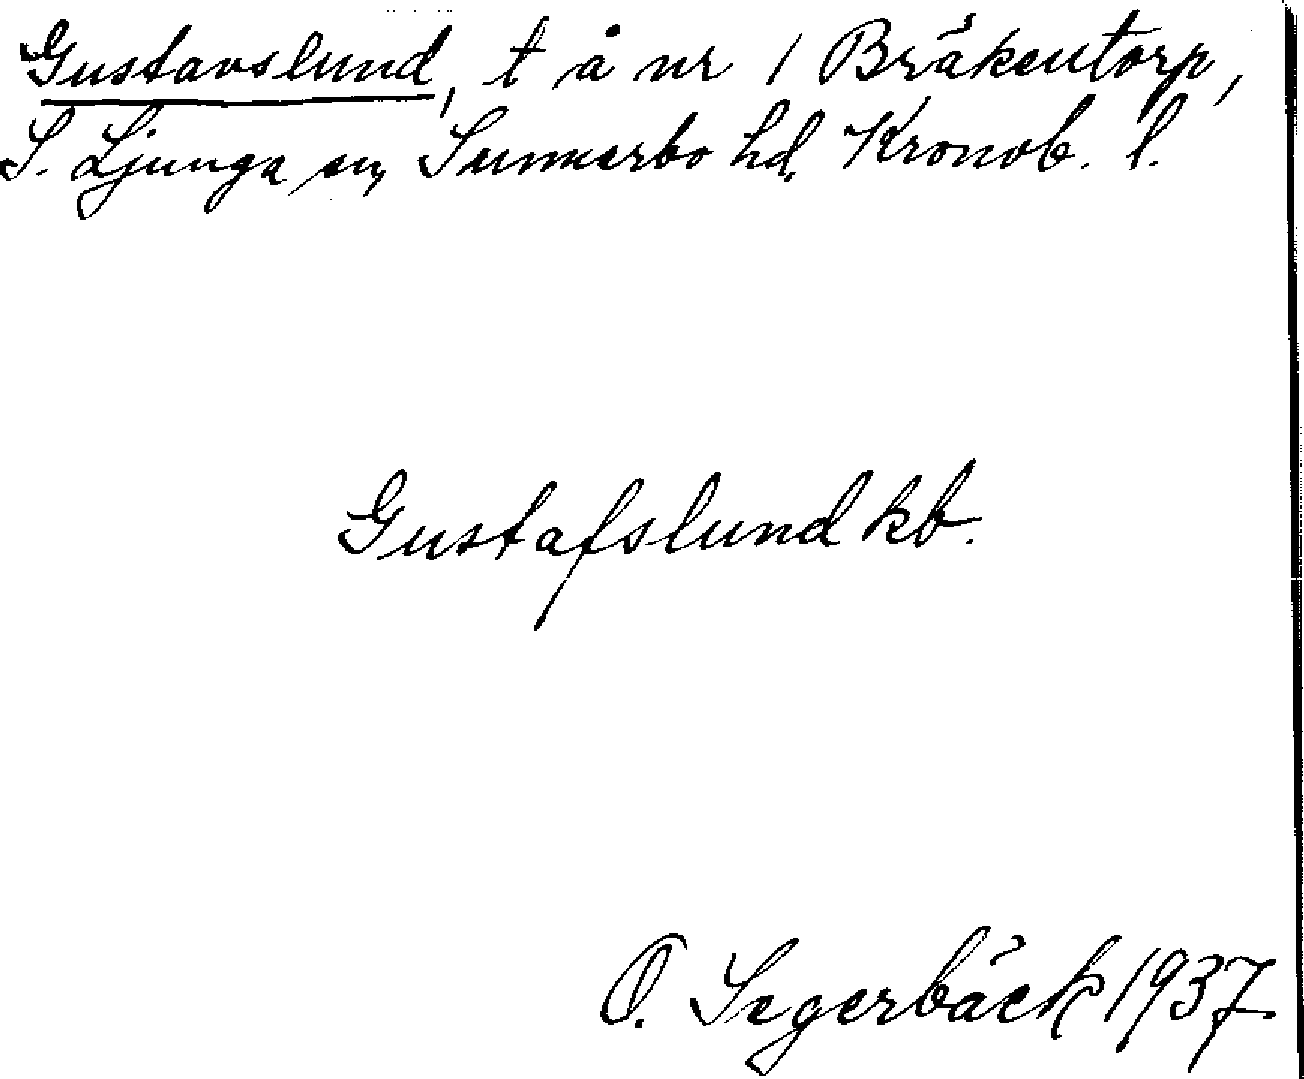 Gustavslund, t å nr 1 Bräkentorp,
S. Ljunga sn, Sunnerbo hd, Kronob. l.
Gustafslund kb.
O. Segerbäck 1937